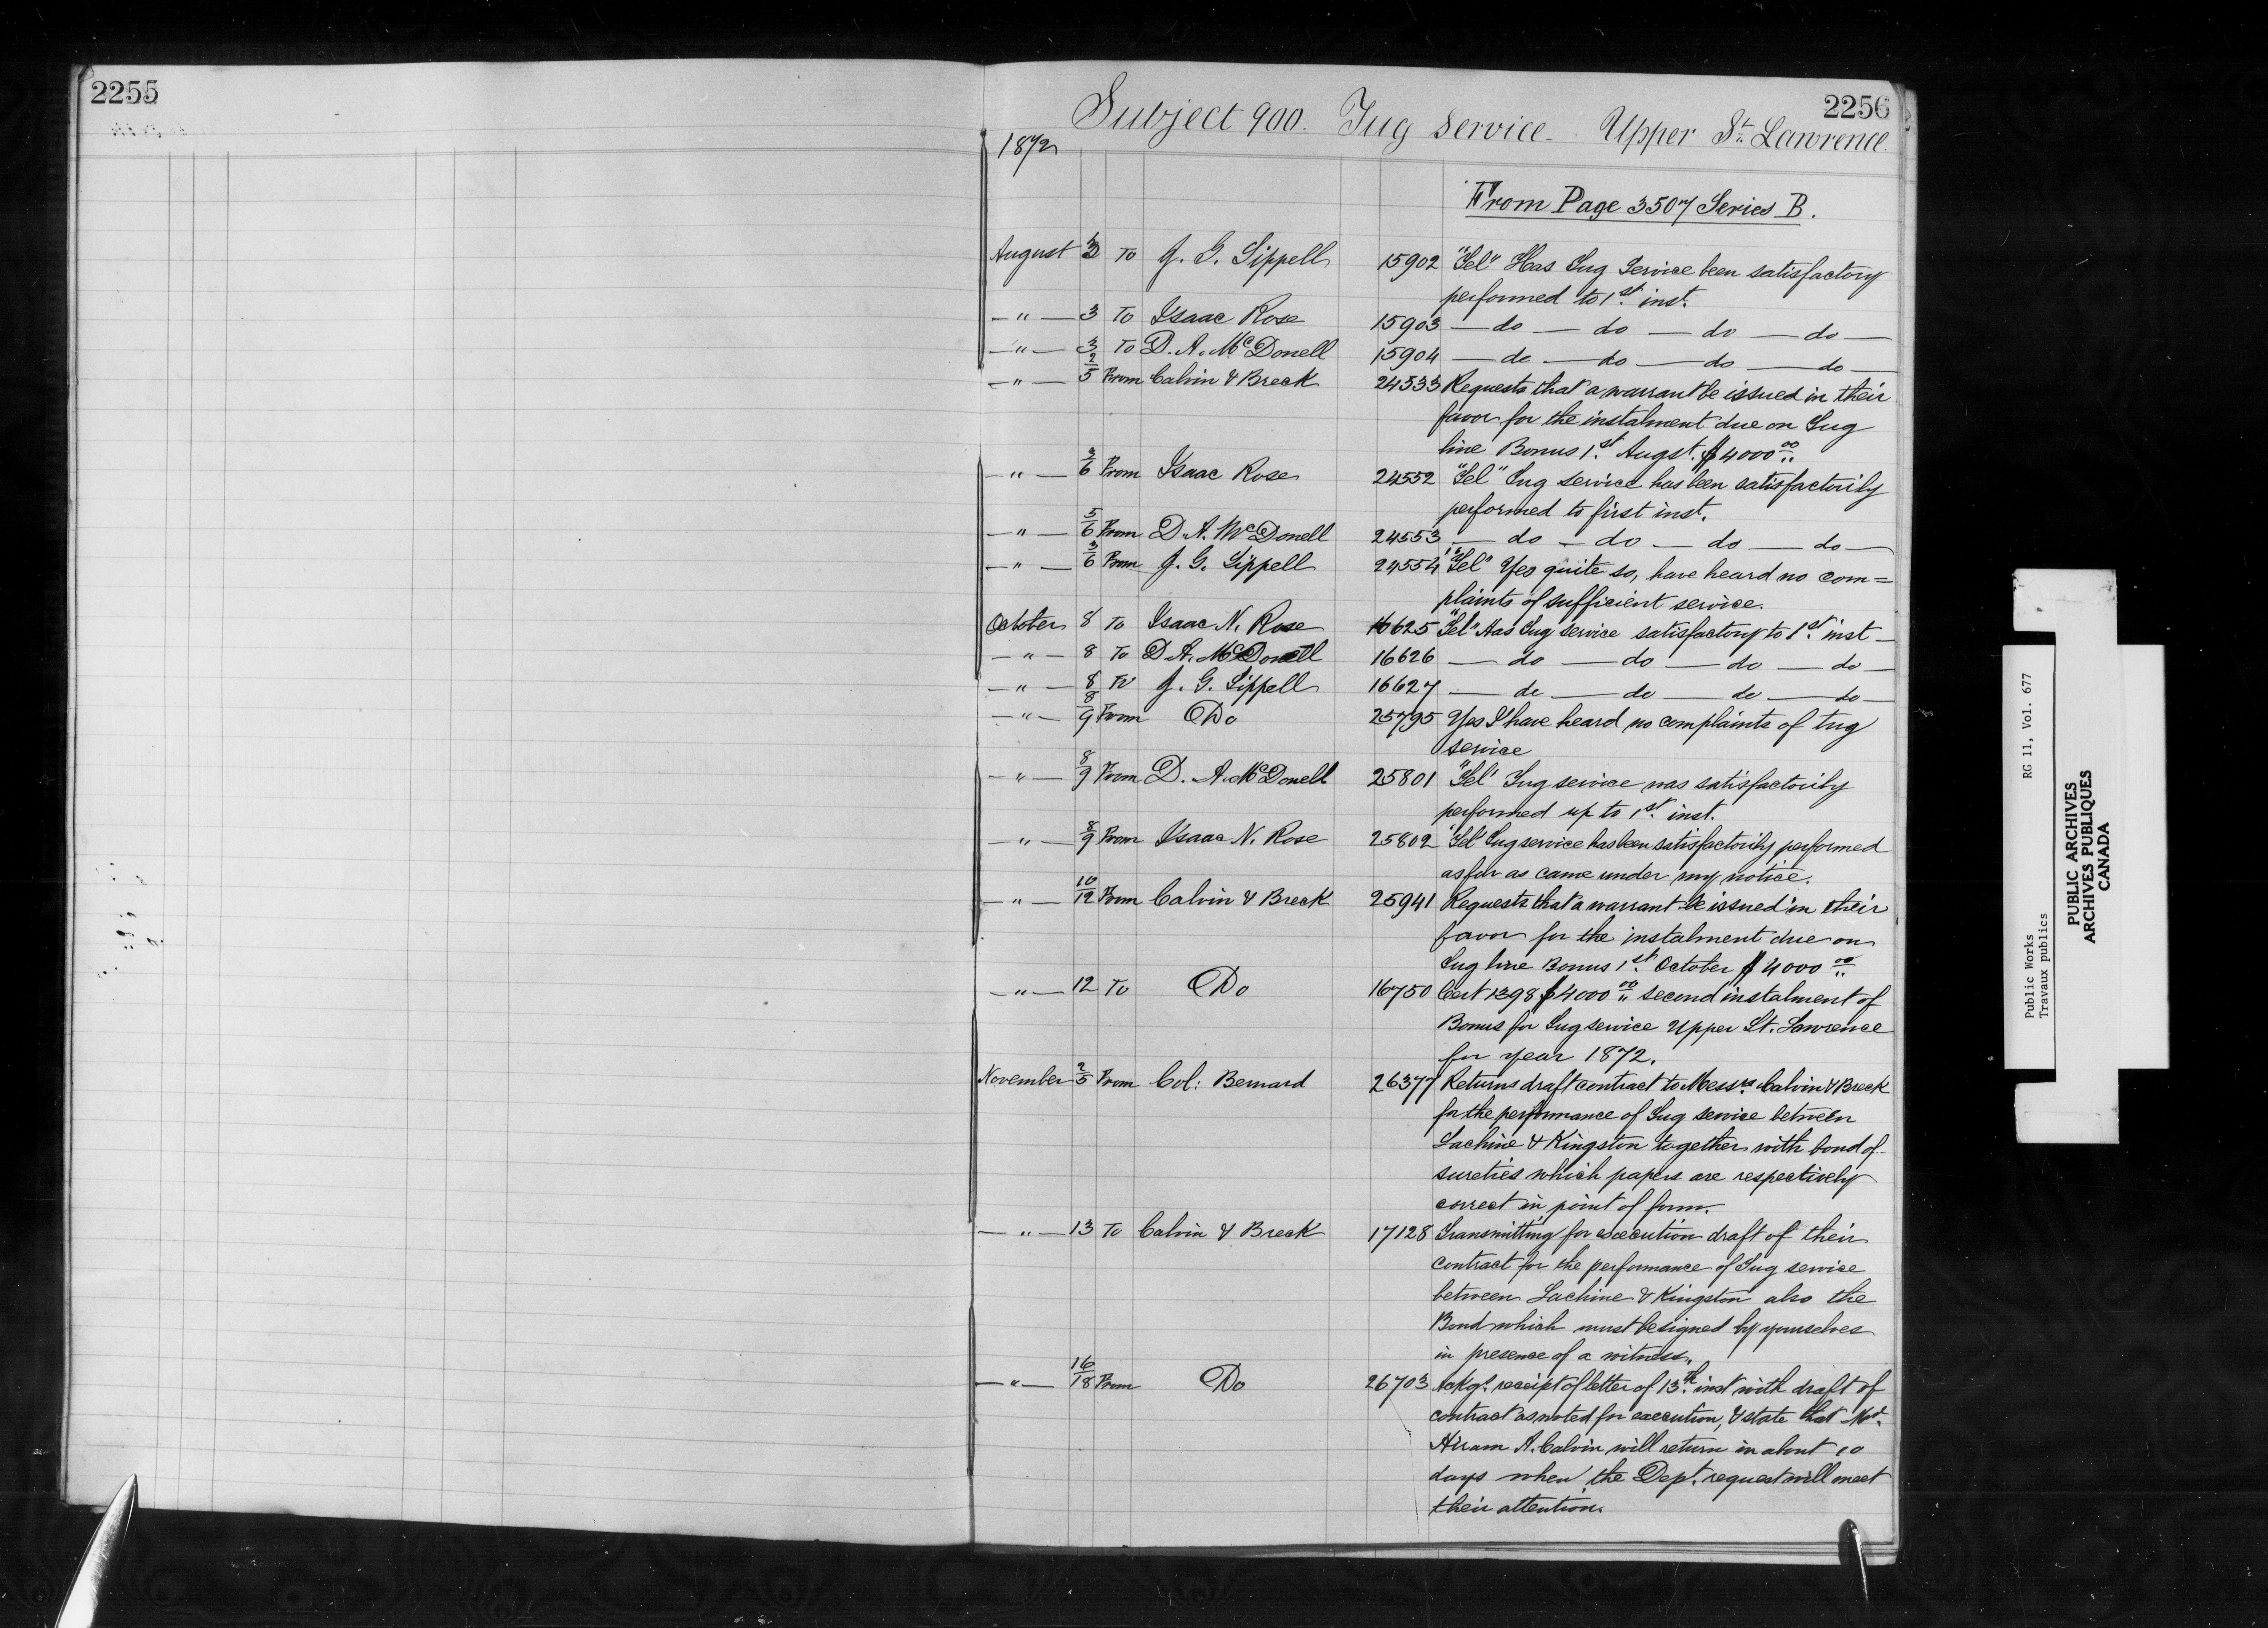 2255
2256
Subject 900. Tug Service - Upper St. Lawrence
1872
From Page 3507 Series B.
August 3 To J. G. Sippell 15902 "Tel" Has Tug Service been satisfactory
performed to 1st inst.
— " — 3 To Isaac Rose 15903 — do — do — do — do —
— " — 3 To D. A. McDonell 15904 — do — do — do — do —
— " — 2/5 From Calvin & Breck 24533 Requests that a warrant be issued in their
favor for the instalment due on Tug
line Bonus 1st Augst. $4000 00
— " — 3/6 From Isaac Rose 24552 "Tel" Tug service has been satisfactorily
performed to first inst.
— " — 5/6 From D. A. McDonell 24553 — do — do — do — do —
— " — 3/6 From J. G. Sippell 24554 "Tel" Yes quite so, have heard no com=
plaints of sufficient service.
October 8 To Isaac N. Rose 16625 "Tel" Has Tug service satisfactory to 1st inst —
— " — 8 To D. A. McDonell 16626 — do — do — do — do —
— " — 8 To J. G. Sippell 16627 — do — do — do — do —
— " — 8/9 From Do 25795 Yes I have heard no complaints of tug
service
— " — 8/9 From D. A. McDonell 25801 "Tel" Tug service was satisfactorily
performed up to 1st inst.
— " — 8/9 From Isaac N. Rose 25802 "Tel" Tug service has been satisfactorily performed
as far as came under my notice.
— " — 10/12 From Calvin & Breck 25941 Requests that a warrant be issued in their
favor for the instalment due on
Tug line Bonus 1st October $4000 00
— " — 12 To Do 16750 Cert 1398 $4000 00 second instalment of
Bonus for Tug service Upper St. Lawrence
for year 1872.
November 2/5 From Col: Bernard 26377 Returns draft contract to Messrs Calvin & Breck
for the performance of Tug service between
Lachine & Kingston together with bond of
sureties which papers are respectively
correct in point of form.
— " — 13 To Calvin & Breck 17128 Transmitting for execution draft of their
contract for the performance of Tug service
between Lachine & Kingston also the
Bond which must be signed by yourselves
in presence of a witness.
— " — 16/18 From Do 26703 Ackgs. receipt of letter of 13th inst with draft of
contract as noted for execution, & state that
Hiram A. Calvin will return in about 10
days when the Dept. request will meet
their attention.
Public Works RG 11, Vol. 677
Travaux publics
PUBLIC ARCHIVES
ARCHIVES PUBLIQUES
CANADA